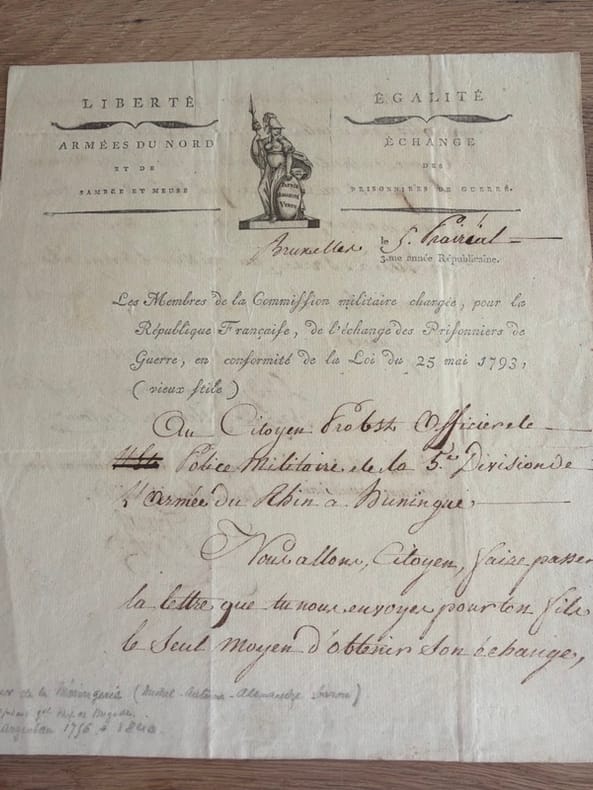 LIBERTÉ
ÉGALITÉ
ARMÉES DU NORD
ET DE
SAMBRE ET MEUSE
ÉCHANGE
DES
PRISONNIERS DE GUERRE.
PATRIE
HUMANITÉ
VERTU
Bruxelles le 5. Prairéal
3.me année Républicaine.
Les Membres de la Commission militaire chargée, pour la
République Française, de l'échange des Prisonniers de
Guerre, en conformité de la Loi du 25 mai 1793,
(vieux stile)
Au Citoyen Probst Officier de
Police Militaire de la 5.e Division de
L'armée du Rhin à Huningue
Nous allons, Citoyen, faire passer
la lettre que tu nous envoyes pour ton fils
le Seul Moyen d'obtenir Son échange,
de la (Michel-Antoine-Alexandre
Brigade
Argentan 1756